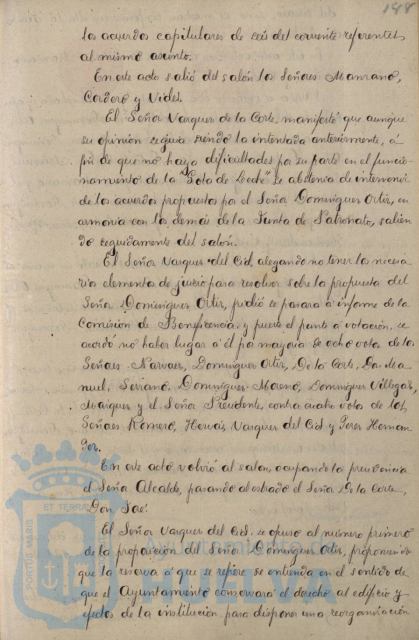 148
los acuerdos capitulares de seis del corriente referentes
al mismo asunto.
En este acto salió del salón los Señores Manzano,
Cordero y Vides.
El Señor Vazquez de la Corte, manifestó que aunque
su opinión seguia siendo la intentada anteriormente, á
fin de que no haya dificultades por su parte en el funcio-
namiento de la "Gota de Leche" se abstenia de intervenir
de los acuerdos propuestos por el Señor Dominguez Ortiz, en
armonia con los demás de la Junta de Patronato, salien
do seguidamente del salón.
El Señor Vazquez del Cid, alegando no tener los necesa
rios elementos de juicio para resolver sobre la propuesta del
Señor Dominguez Ortiz, pidió se pasara á informe de la
Comisión de Beneficencia, y puesto el punto á votación, se
acordó no haber lugar á él por mayoria de ocho votos de los
Señores Narvaez, Dominguez Ortiz, De la Corte, Don Ma
nuel, Soriano, Dominguez Moreno, Dominguez Villegas,
Marquez y el Señor Presidente, contra cuatro votos de los
Señores Romero, Hervás, Vazquez del Cid y Perez Hernan
dez.
En este acto volvió al salon, ocupando la presidencia
el Señor Alcalde, pasando al estrado el Señor De la Corte,
Don José.
El Señor Vazquez del Cid, se opuso al número primero
de la proposición del Señor Dominguez Ortiz, proponiendo
que la reserva á que se refiere se entienda en el sentido de
que el Ayuntamiento conservará el derecho al edificio y
efectos de la institución para disponer una reorganización
PORTUS MARIS
ET TERRAE
Ayuntamiento de
HUELVA